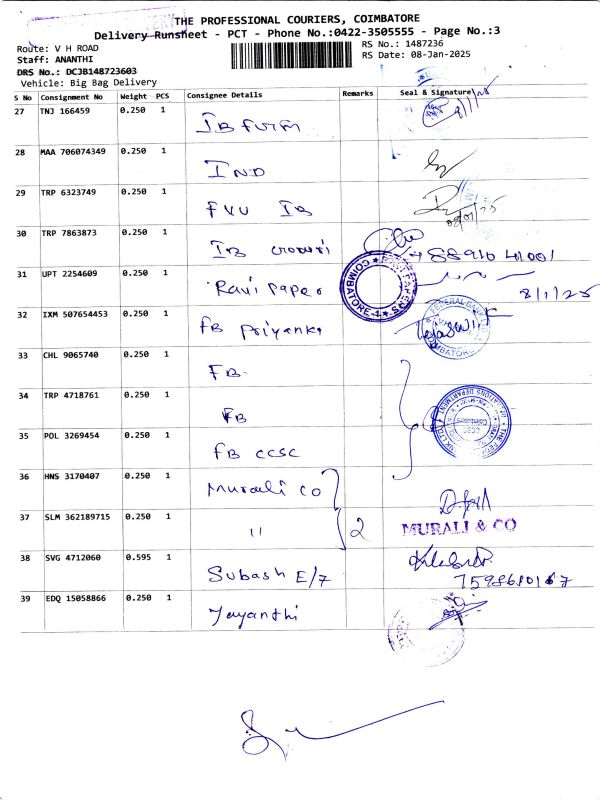 THE PROFESSIONAL COURIERS, COIMBATORE
Delivery Runsheet - PCT - Phone No.:0422-3505555 - Page No.:3
Route: V H ROAD
RS No.: 1487236
Staff: ANANTHI
RS Date: 08-Jan-2025
DRS No.: DCJB148723603
Vehicle: Big Bag Delivery
S No Consignment No Weight PCS Consignee Details Remarks Seal & Signature
27 TNJ 166459 0.250 1 IB 8/1/25
28 MAA 706074349 0.250 1 IND
29 TRP 6323749 0.250 1 FVU IB 08/01/25
30 TRP 7863873 0.250 1 IB 8891041001
31 UPT 2254609 0.250 1 Ravi Paper COIMBATORE-1 8/1/25
32 IXM 507654453 0.250 1 FB Priyanka FEDERAL BANK COIMBATORE
33 CHL 9065740 0.250 1 FB
34 TRP 4718761 0.250 1 FB
35 POL 3269454 0.250 1 FB CCSC
36 HNS 3170407 0.250 1 Murali CO
37 SLM 362189715 0.250 1 11 2 MURALI & CO
38 SVG 4712060 0.595 1 Subash E/7
39 EDQ 15058866 0.250 1 Jayanthi